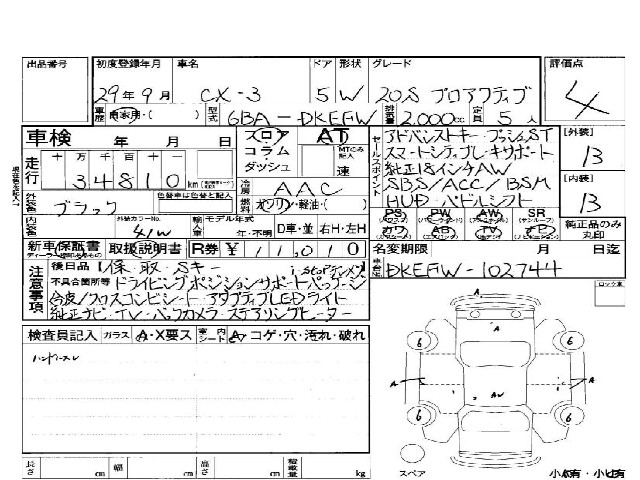 出品番号 初度登録年月 車名 ドア 形状 グレード 評価点
29年 9月 CX-3 5 W 20S プロアクティブ 4
車歴 自家用・( ) 型式 6BA-DKEFW 排気量 2,000cc 定員 5人
車検 年 月 日 フロア AT アドバンストキー・プッシュST [外装]
コラム MTのみ記入 スマートシティブレーキサポート 13
走行 十万 千百十 ダッシュ 速 純正18インチAW
34810 km 冷房 AAC SBS/ACC/BSM [内装]
外装色 ブラック 色替車は色替と記入 燃料 ガソリン・軽油・( ) HUD・パドルシフト 13
セールスポイント
内装色 外装カラーNo. 41W 輸入車 モデル年式 年・不明 D車・並 右H・左H
PS PW AW SR
カワ AB TV ナビ 純正品のみ丸印
新車保証書 取扱説明書 R券 ¥11,010 名変期限 月 日迄
注意事項 後日品 保 取 Sキー i-STOP
車台No. DKEFW-102744
不具合箇所等 ドライビングポジションサポートパッケージ
合皮/クロスコンビシート・アダプティブLEDライト
純正ナビ・TV・バックカメラ・ステアリングヒーター
ロック車
検査員記入 ガラス A・X要ス 室内シート A・コゲ・穴・汚れ・破れ
ハンドルスレ
A
6 6
A A A
AW
6 6
スペア 小A有・小U有
長さ cm 幅 cm 高さ cm 積載量 kg